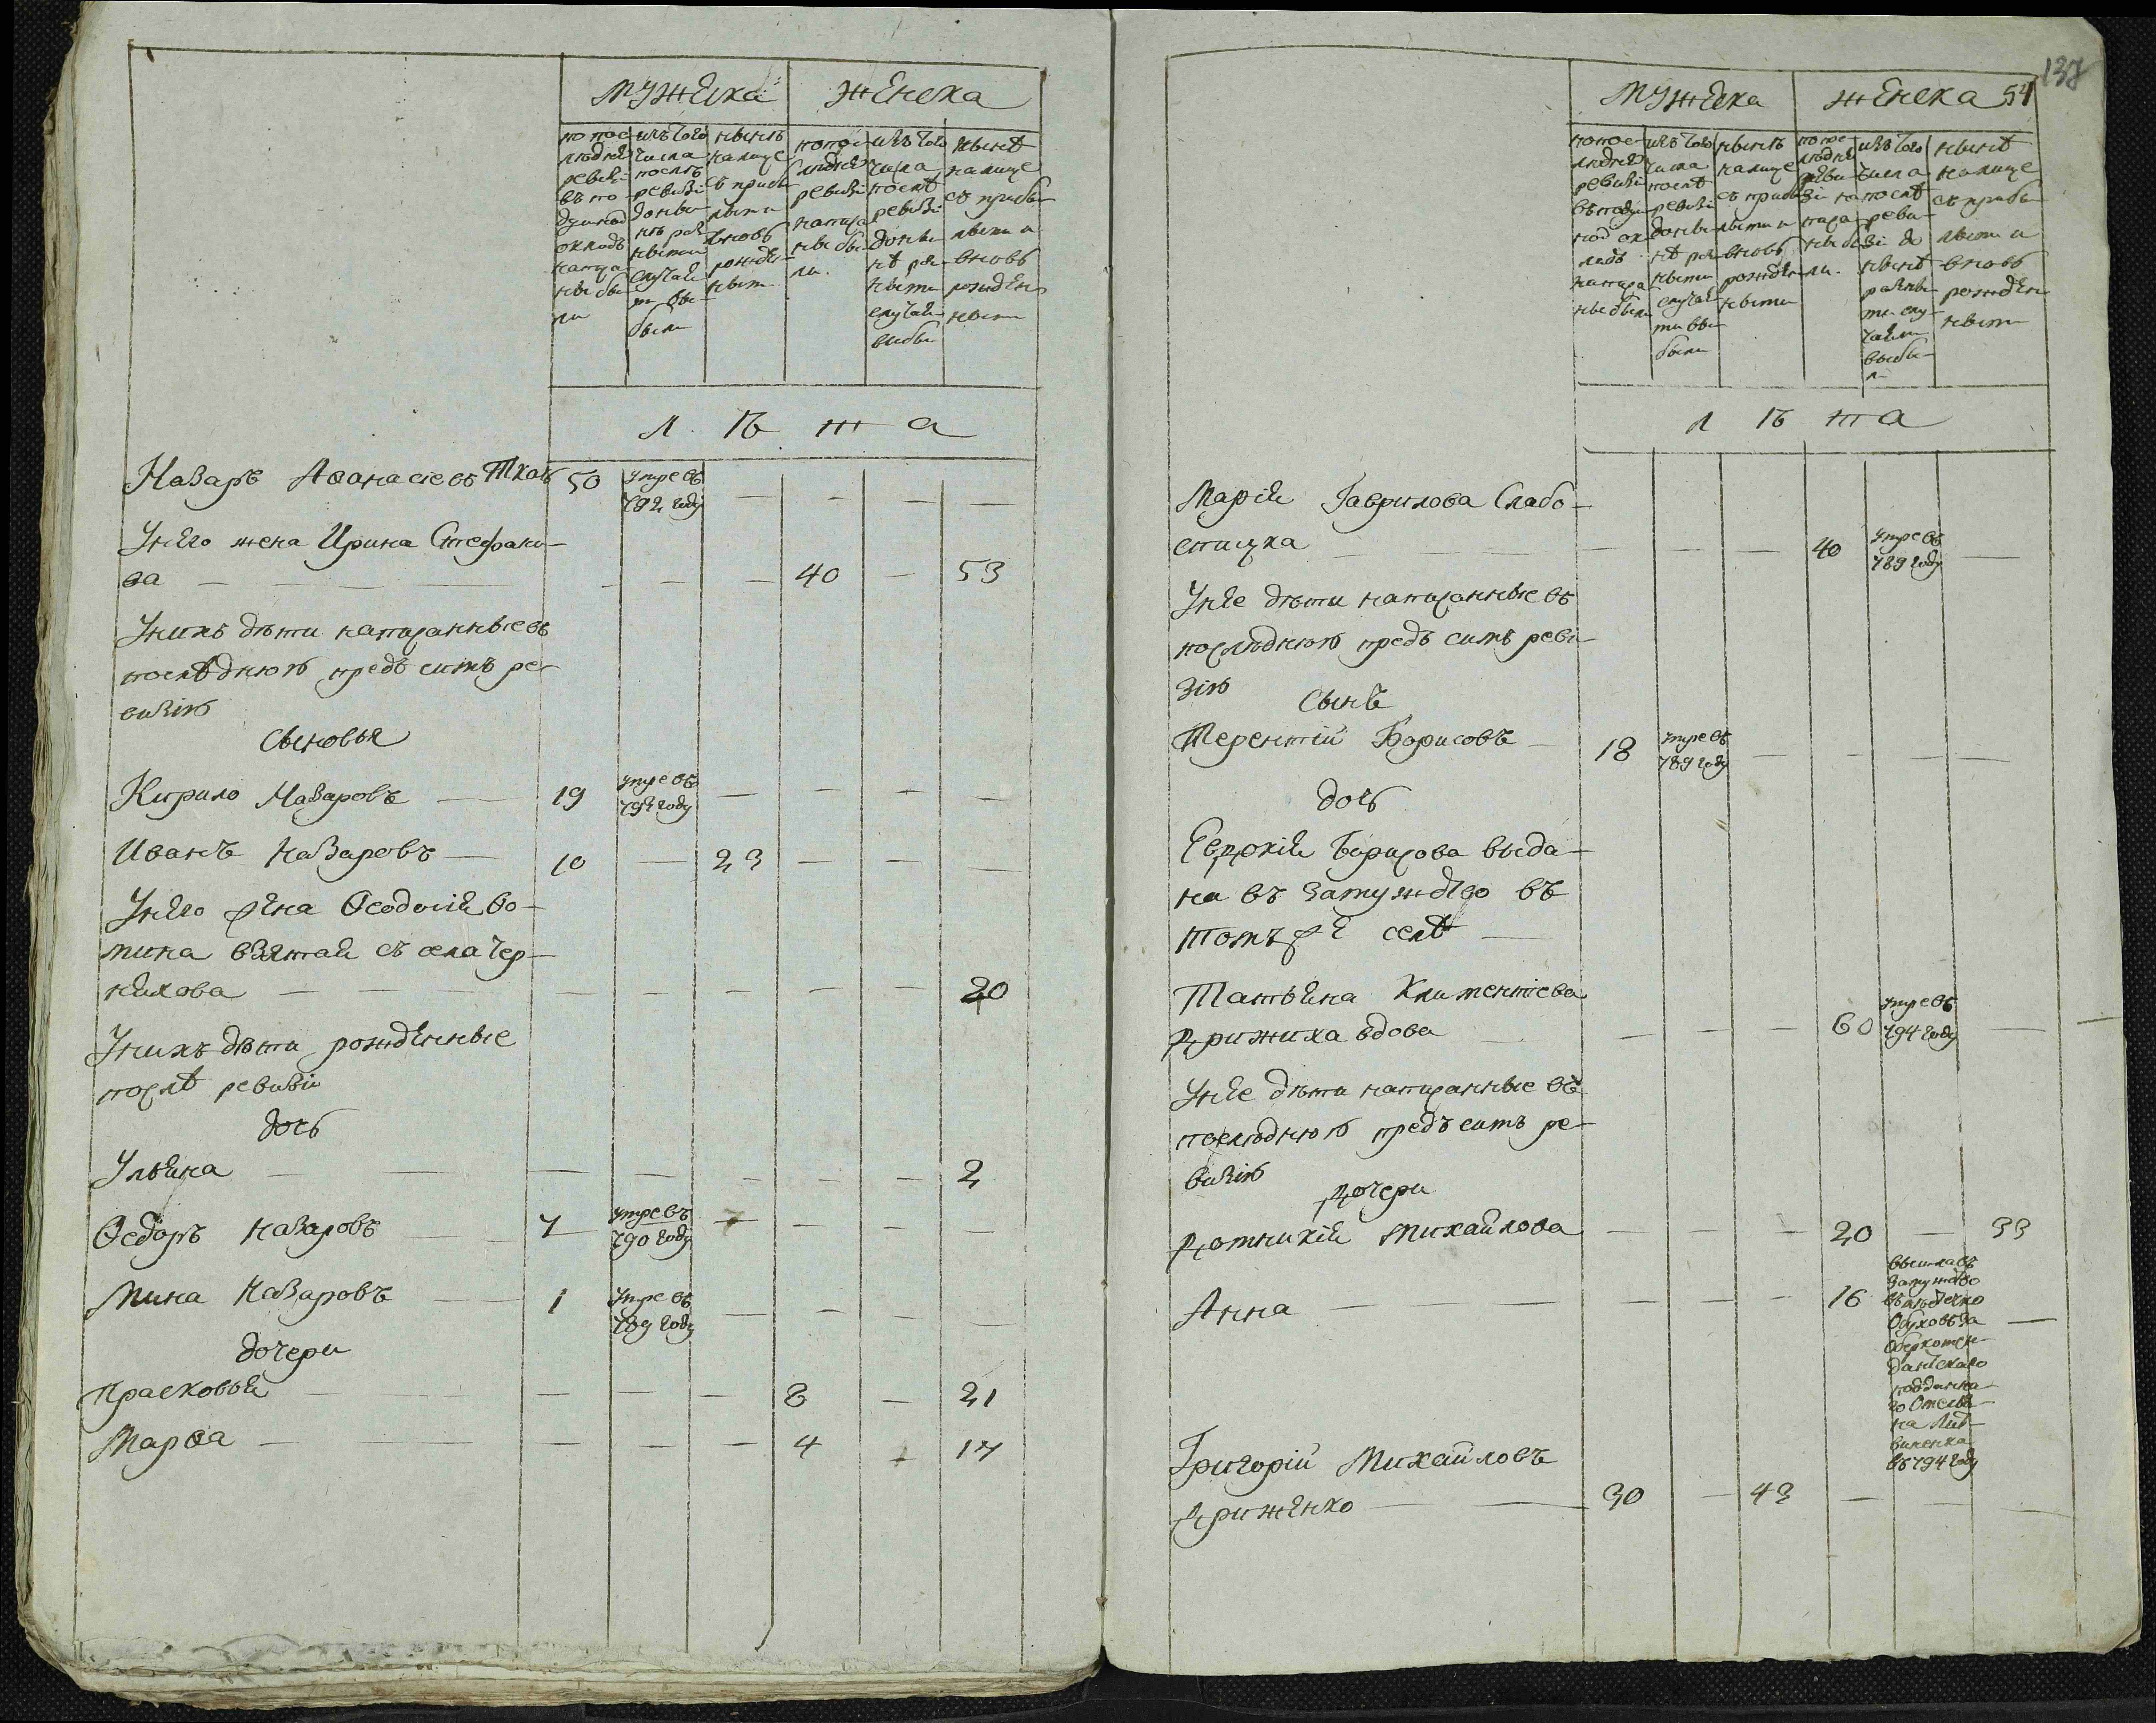 мужеска женска
по пос-
лѣдней
ревизі
въ по-
душной
окладъ
написа-
ны бы-
ли
изъ того
числа
послѣ
ревизі
до ны-
нѣ раз-
ными
случая-
ми вы-
были
нынѣ
налице
съ прибы-
лыми
вновь
рожде-
ными
по пос-
лѣдней
ревизі
написа-
ны бы-
ли.
изъ того
числа
послѣ
ревизі
до ны-
нѣ раз-
ными
случаи
выбы-
нынѣ
налице
съ прибы-
лыми и
вновь
рожден-
ными
л ѣ т а
Назаръ Аѳанасіевъ Ткачъ 50 умре въ 792 году — — — —
У него жена Ирина Стефано-
ва — — — — 40 — 53
У нихъ дѣти написанные въ
послѣднюю предъ симъ ре-
визію
сыновья
Кирило Назаровъ — 19 умре въ 792 году — — — —
Иванъ Назаровъ — 10 — 23 — — —
У него жена Ѳеодосія Ѳо-
мина взятая съ села Чер-
нѣхова — — — — — — — 20
У нихъ дѣти рожденные
послѣ ревизіи
дочь
Ульяна — — — — — — — 2
Ѳедоръ Назаровъ — 7 умре въ 790 году — — — —
Мина Назаровъ — 1 умре въ 789 году — — — —
дочери
Прасковья — — — — 8 — 21
Марѳа — — — — 4 — 17
137
мужеска женска 54
по пос-
лѣдней
ревизіи
въ поду-
ной ок-
ладъ
написа-
ны были
изъ того
числа
послѣ
ревизі
до ны-
нѣ раз-
ными
случая-
ми вы-
были
нынѣ
налице
съ прибы-
лыми и
вновь
рожден-
ными
по пос-
лѣдней
реви-
зі на-
писа-
ны бы-
ли.
изъ того
числа
послѣ
реви-
зі до
нынѣ
разны-
ми слу-
чаями
выбы-
ли
нынѣ
налице
съ прибы-
лыми и
вновь
рожден-
ными
л ѣ т а
Марія Гаврилова Слабо-
спицка — — — — 40 умре въ 789 году —
У нее дѣти написанные въ
послѣднюю предъ симъ реви-
зію
сынъ
Терентій Борисовъ — 18 умре въ 789 году — — — —
дочь
Евдокія Борисова выда-
на въ замужство въ
томъ же селѣ —
Татьяна Климентіева
Дрижиха вдова — — — — 60 умре въ 794 году —
У нее дѣти написанные въ
послѣднюю предъ симъ ре-
визію
дочери
Домникія Михайлова — — — 20 — 33
Анна — — — — 16 —
вышла въ
замужство
въ мѣстечко
Обуховъ за
Оберкомен-
данского
поддана-
го Омелья-
на Лит-
виненка
въ 794 году
Григорій Михайловъ
Дриженко — 30 — 43 — — —